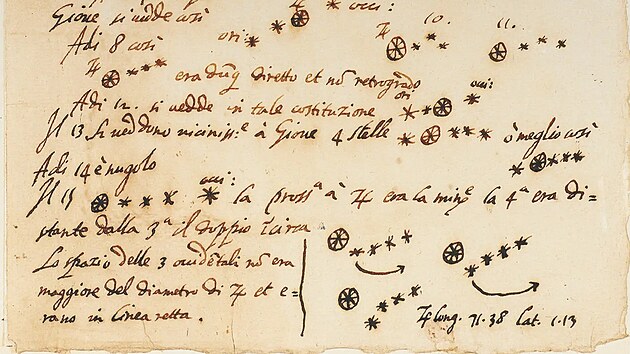 Giove si vedde così ♃ occi:
Adi 8 così ori: ♃ 10. 11.
♃ era dūq diretto et nō retrogrado
Adi 12. si vedde in tale costituzione ori occi:
Il 13 si veddono vicinissᵉ à Giove 4 stelle ò meglio così
Adi 14 è nugolo
Il 15 occi: la prossᵃ à ♃ era la minᵉ la 4ᵃ era di=
stante dalla 3ᵃ il doppio circa
Lo spazio delle 3 occidētali nō era
maggiore del diametro di ♃ et e=
rano in linea retta.
♃ long. 71.38 lat. 1.13